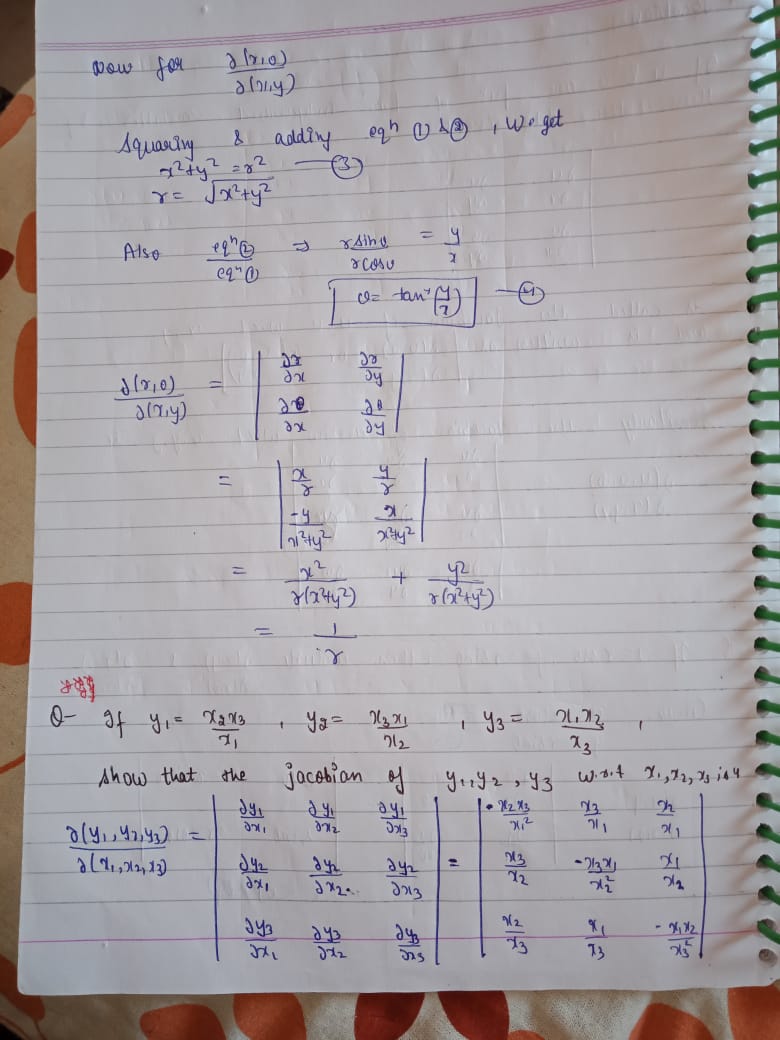 Now for ∂(r,θ)/∂(x,y)
Squaring & adding eqn ① & ②, We get
x²+y² = r² —③
r = √x²+y²
Also eqn②/eqn① ⇒ rsinθ/rcosθ = y/x
θ = tan⁻¹(y/x) —④
∂(r,θ)/∂(x,y) = | ∂r/∂x ∂r/∂y |
| ∂θ/∂x ∂θ/∂y |
= | x/r y/r |
| -y/x²+y² x/x²+y² |
= x²/r(x²+y²) + y²/r(x²+y²)
= 1/r
Q- If y₁ = x₂x₃/x₁, y₂ = x₃x₁/x₂, y₃ = x₁x₂/x₃,
show that the jacobian of y₁,y₂,y₃ w.r.t x₁,x₂,x₃ is 4
∂(y₁,y₂,y₃)/∂(x₁,x₂,x₃) = | ∂y₁/∂x₁ ∂y₁/∂x₂ ∂y₁/∂x₃ | = | -x₂x₃/x₁² x₃/x₁ x₂/x₁ |
| ∂y₂/∂x₁ ∂y₂/∂x₂ ∂y₂/∂x₃ | | x₃/x₂ -x₃x₁/x₂² x₁/x₂ |
| ∂y₃/∂x₁ ∂y₃/∂x₂ ∂y₃/∂x₃ | | x₂/x₃ x₁/x₃ -x₁x₂/x₃² |